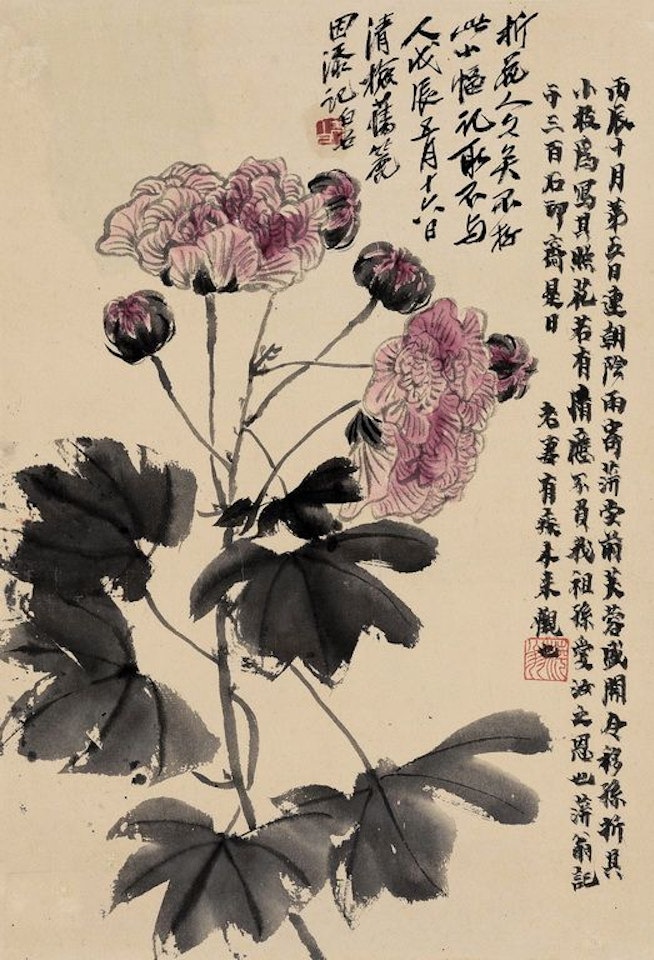 丙辰十月第五日連朝陰雨寄萍堂前芙蓉盛開令移孫折其
小枝為寫其照花若有情應不負我祖孫愛汝之恩也萍翁記
于三百石印齋是日 老妻有疾未來觀也
折花人久矣不存
此小幅記取不與
人戊辰五月十六日
清檢舊簏
因添記白石